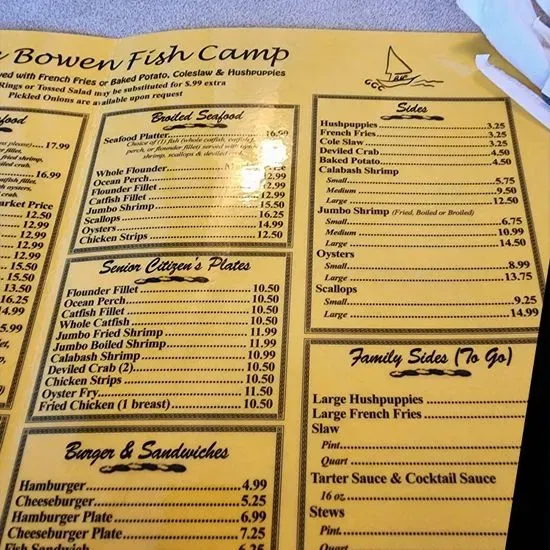 Bowen Fish Camp
with French Fries or Baked Potato, Coleslaw & Hushpuppies
Rings or Tossed Salad may be substituted for $.99 extra
Pickled Onions are available upon request
please)..... 17.99
16.99
Market Price
12.50
12.99
12.99
12.99
15.50
15.50
13.50
16.25
14.99
Broiled Seafood
Seafood Platter..... 16.50
Choice of (1) fish (whole catfish, catfish
perch, or flounder fillet) served with
shrimp, scallops & deviled
Whole Flounder
Ocean Perch..... 12.99
Flounder Fillet..... 12.99
Catfish Fillet..... 12.99
Jumbo Shrimp..... 15.50
Scallops..... 16.25
Oysters..... 14.99
Chicken Strips..... 12.50
Senior Citizen's Plates
Flounder Fillet..... 10.50
Ocean Perch..... 10.50
Catfish Fillet..... 10.50
Whole Catfish..... 10.50
Jumbo Fried Shrimp..... 11.99
Jumbo Boiled Shrimp..... 11.99
Calabash Shrimp..... 10.99
Deviled Crab (2)..... 10.50
Chicken Strips..... 10.50
Oyster Fry..... 11.50
Fried Chicken (1 breast)..... 10.50
Burger & Sandwiches
Hamburger..... 4.99
Cheeseburger..... 5.25
Hamburger Plate..... 6.99
Cheeseburger Plate..... 7.25
Fish Sandwich..... 6.25
Sides
Hushpuppies..... 3.25
French Fries..... 3.25
Cole Slaw..... 3.25
Deviled Crab..... 4.50
Baked Potato..... 4.50
Calabash Shrimp
Small..... 5.75
Medium..... 9.50
Large..... 12.50
Jumbo Shrimp (Fried, Boiled or Broiled)
Small..... 6.75
Medium..... 10.99
Large..... 14.50
Oysters
Small..... 8.99
Large..... 13.75
Scallops
Small..... 9.25
Large..... 14.99
Family Sides (To Go)
Large Hushpuppies.....
Large French Fries.....
Slaw
Pint.....
Quart.....
Tarter Sauce & Cocktail Sauce
16 oz.....
Stews
Pint.....
Quart.....